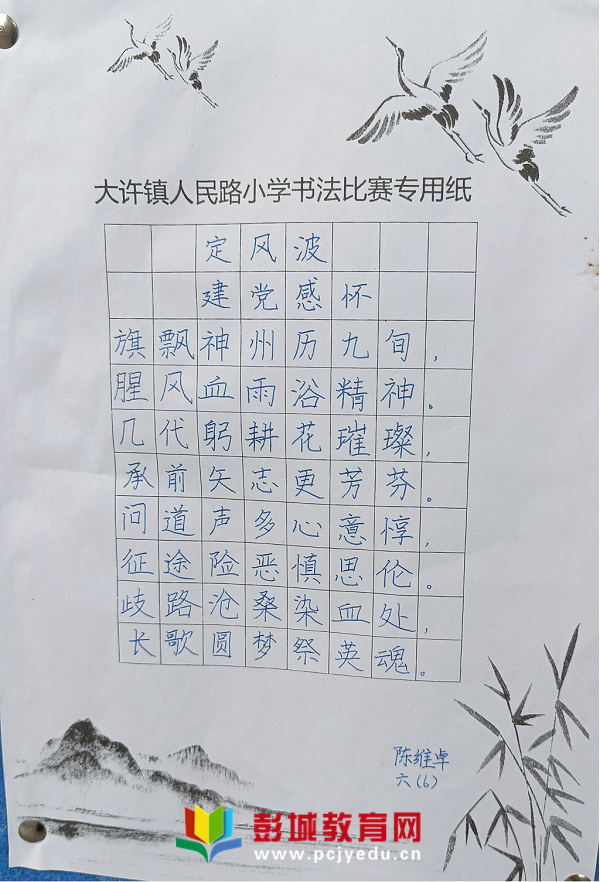 大许镇人民路小学书法比赛专用纸
定风波
建党感怀
旗飘神州历九旬，
腥风血雨浴精神。
几代躬耕花璀璨，
承前矢志更芳芬。
问道声多心意惇，
征途险恶慎思伦。
歧路沧桑染血处，
长歌圆梦祭英魂。
陈维卓
六(6)
彭城教育网
www.pcjyedu.cn